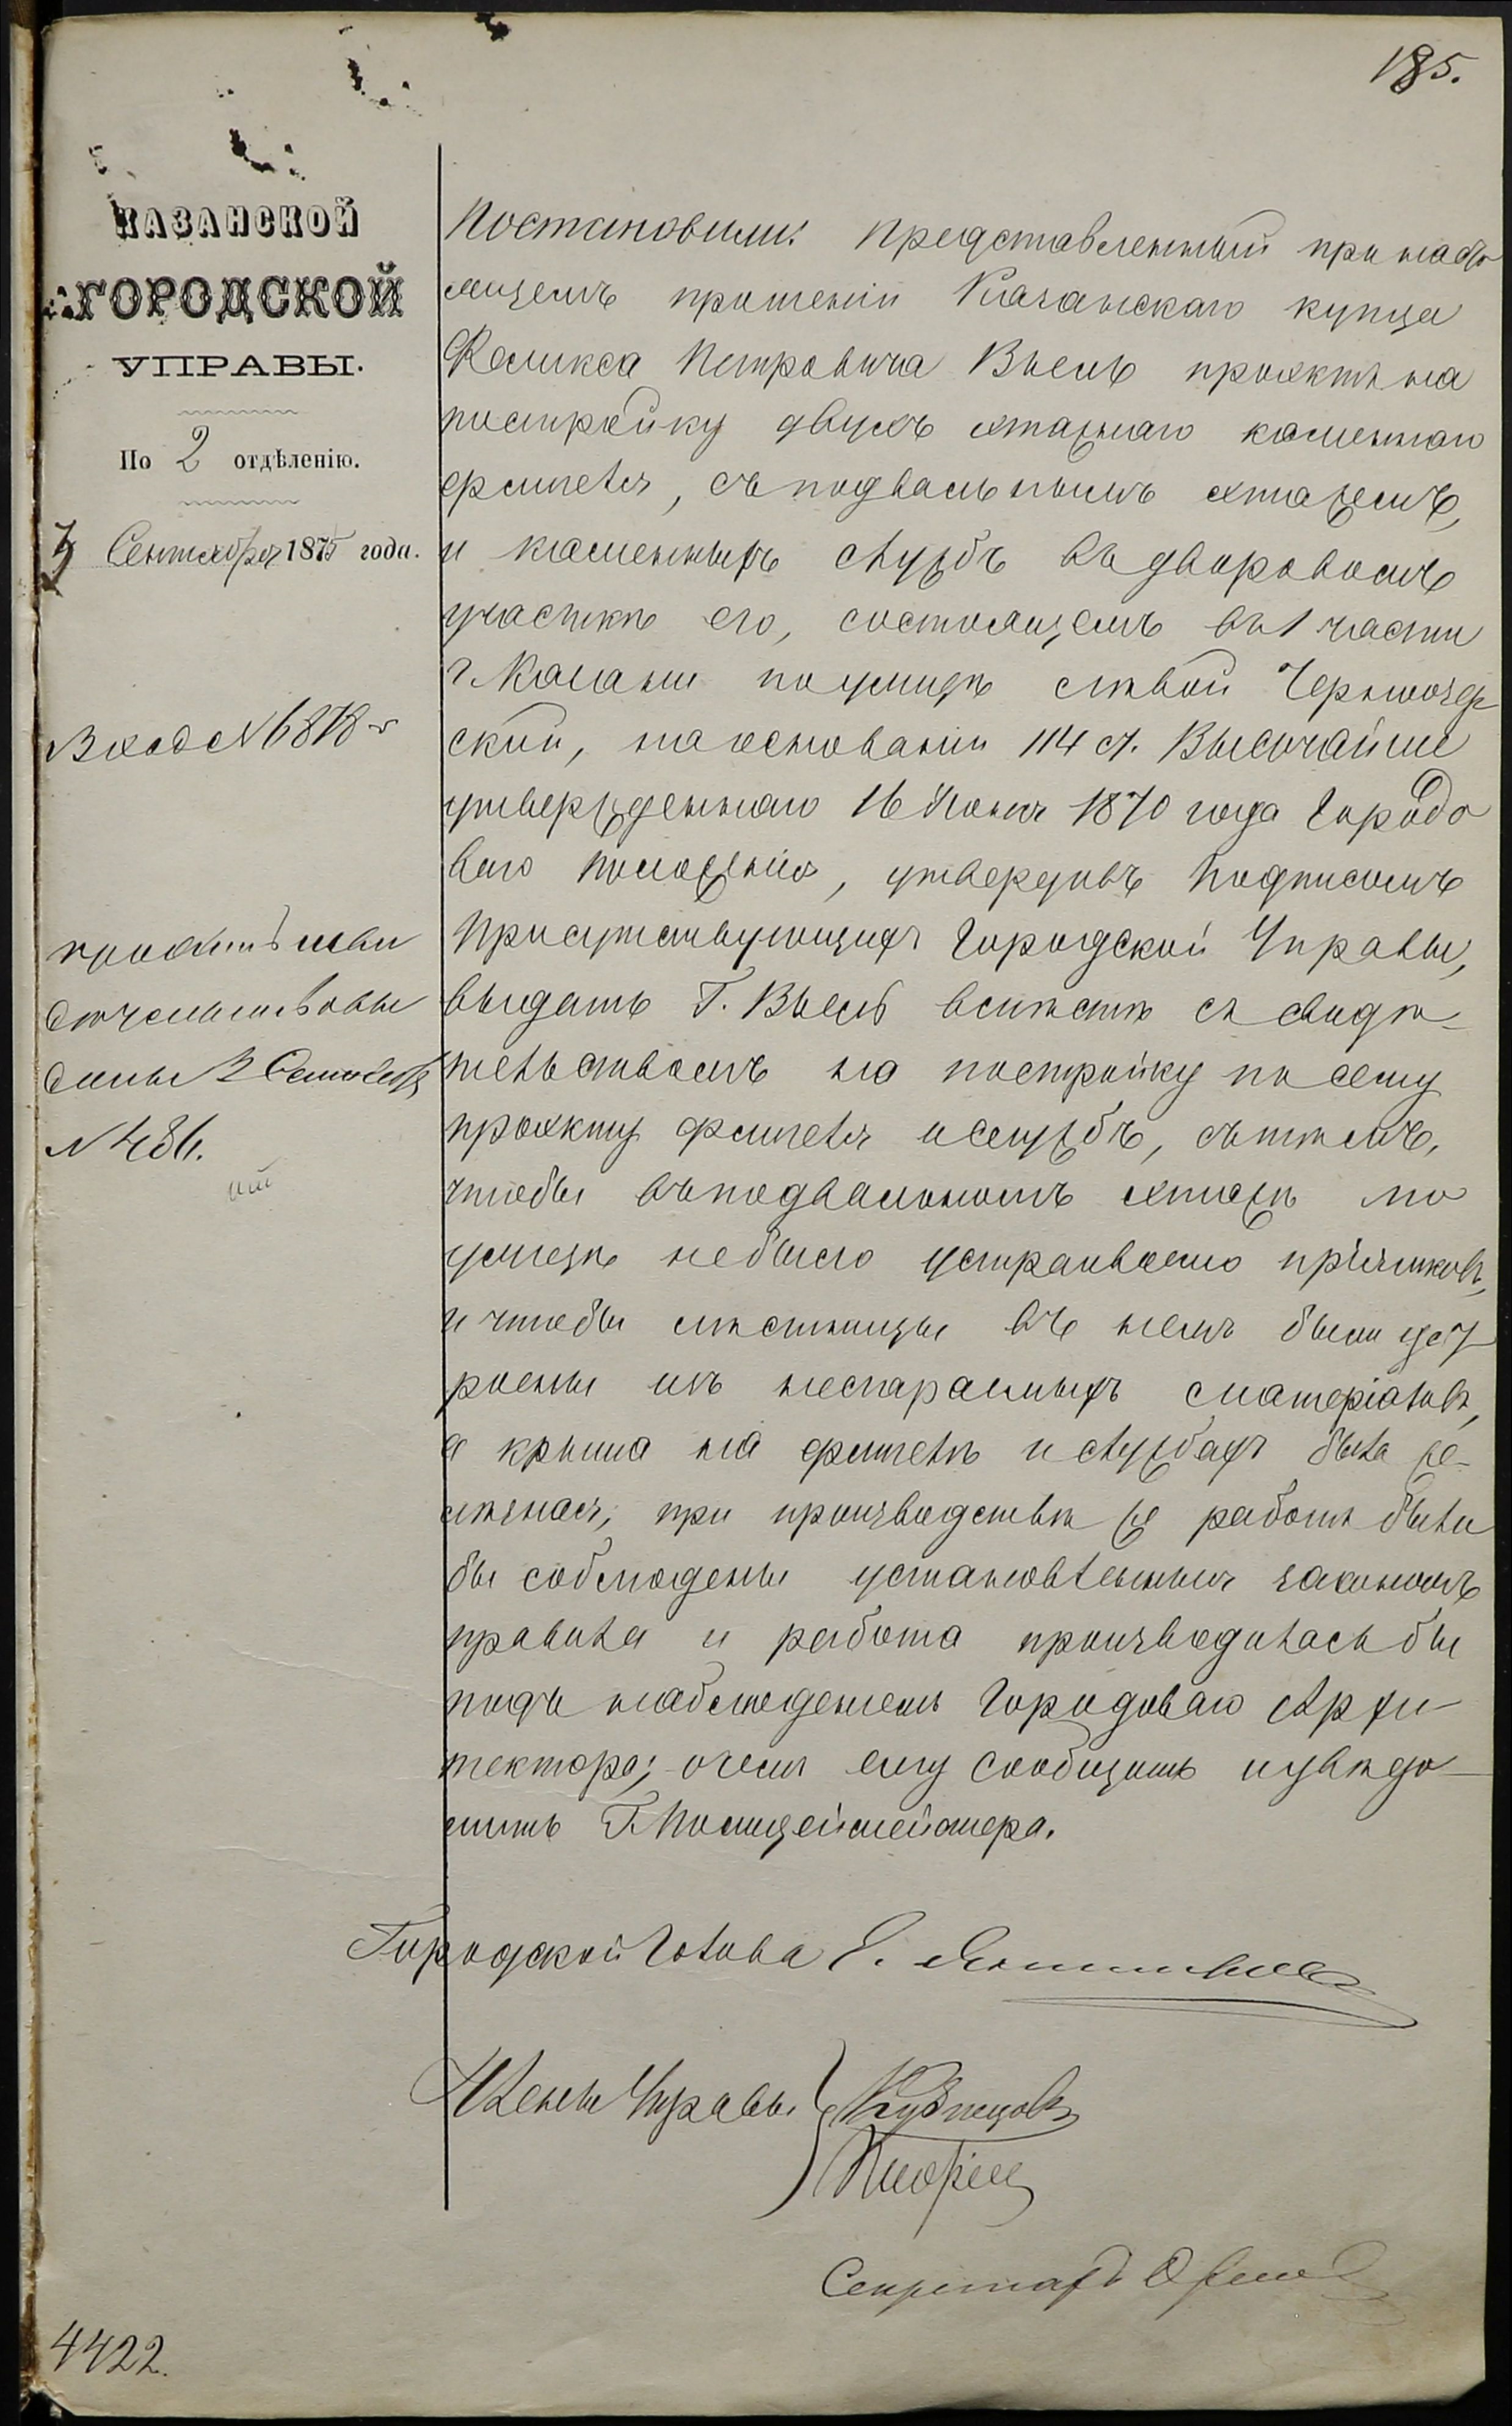 185.
КАЗАНСКОЙ
ГОРОДСКОЙ
УПРАВЫ.
По 2 отдѣленію.
3 Сентября 1875 года.
Вход №6878
проэктъ и сви
дѣтельство
даны 3 Сентября
№ 486.
Постановили: Представленный при насто
ящемъ прошеніи Казанскаго купца
Феликса Петровича Вьель проэктъ на
постройку двухъ этажнаго каменнаго
флигеля, съ подвальнымъ этажемъ,
и каменныхъ службъ въ дворовомъ
участкѣ его, состоящемъ въ 1 части
г. Казани по улицѣ
ской, на основаніи 114 ст. Высочайше
утвержденнаго 16 Іюня 1870 года Городо
ваго положенія, утвердивъ подписомъ
Присутствующихъ Городской Управы,
выдать Г. Вьель вмѣстѣ съ свидѣ-
тельствомъ на постройку по сему
проэкту флигеля и службъ, съ тѣмъ,
чтобы въ подвальномъ этажѣ по
улицѣ не было устраиваемо пріямковъ,
и чтобы лѣстницы въ немъ были уст
роены изъ несгараемыхъ матеріаловъ,
а крыша на флигелѣ и службахъ была же-
лѣзная; при производствѣ же работъ были
бы соблюдены установленныя закономъ
правила и работа производилась бы
подъ наблюденіемъ Городоваго Архи-
тектора; о чемъ ему сообщить и увѣдо-
мить Г. Полицеймейстера.
Городской Голова Е.
Члены Управы Кузнецовъ
Секретарь
4422.